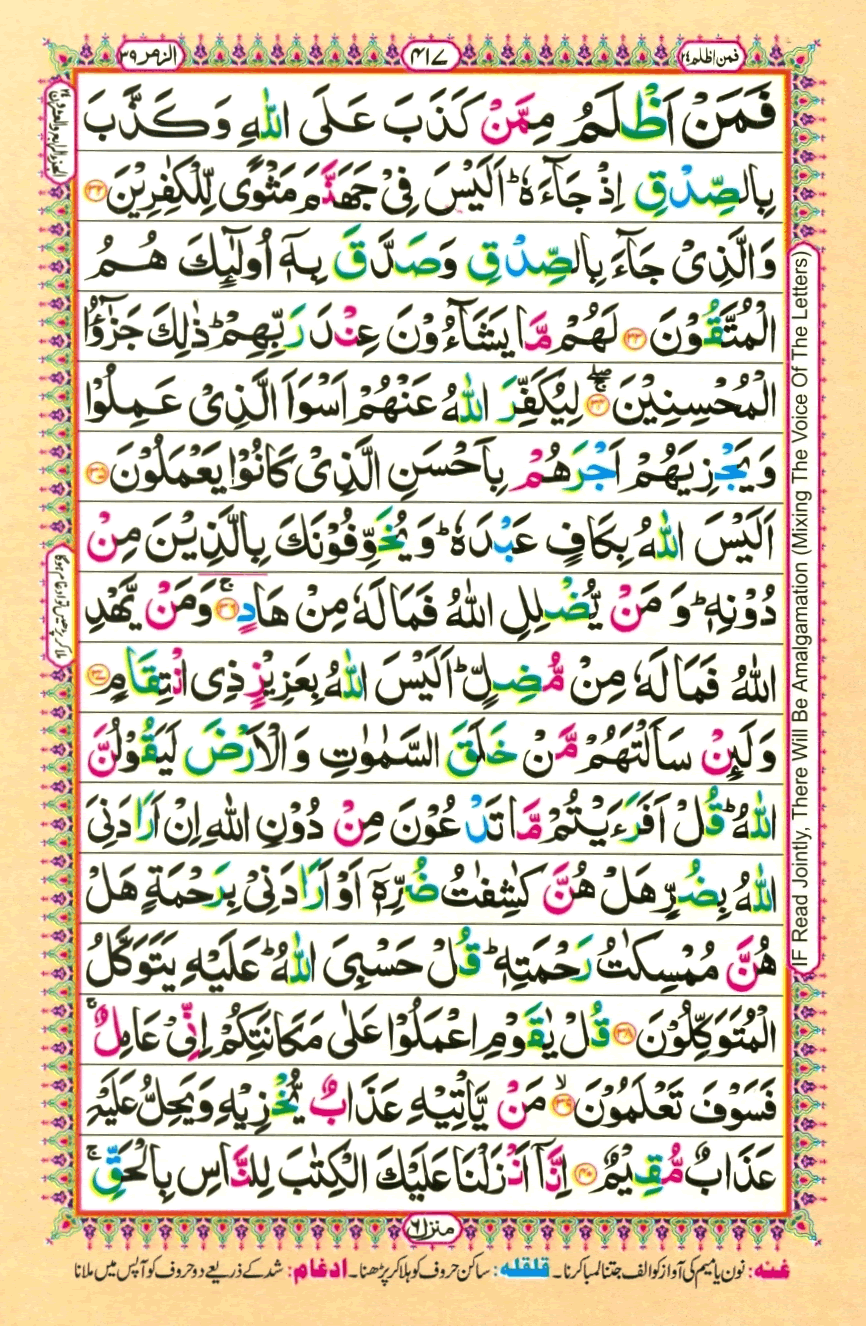 الزمر ٣٩
٤١٧
فمن اظلم ٢٤
فَمَنْ اَظْلَمُ مِمَّنْ كَذَبَ عَلَى اللّٰهِ وَكَذَّبَ
بِالصِّدْقِ اِذْ جَآءَهٗ ؕ اَلَيْسَ فِىْ جَهَنَّمَ مَثْوًى لِّلْكٰفِرِيْنَ ﴿۳۲﴾
وَالَّذِىْ جَآءَ بِالصِّدْقِ وَصَدَّقَ بِهٖۤ اُولٰٓئِكَ هُمُ
الْمُتَّقُوْنَ ﴿۳۳﴾ لَهُمْ مَّا يَشَآءُوْنَ عِنْدَ رَبِّهِمْ ؕ ذٰلِكَ جَزٰٓؤُا
الْمُحْسِنِيْنَ ﴿۳۴﴾ ۚۖ لِيُكَفِّرَ اللّٰهُ عَنْهُمْ اَسْوَاَ الَّذِىْ عَمِلُوْا
وَيَجْزِيَهُمْ اَجْرَهُمْ بِاَحْسَنِ الَّذِىْ كَانُوْا يَعْمَلُوْنَ ﴿۳۵﴾
اَلَيْسَ اللّٰهُ بِكَافٍ عَبْدَهٗ ؕ وَيُخَوِّفُوْنَكَ بِالَّذِيْنَ مِنْ
دُوْنِهٖ ؕ وَمَنْ يُّضْلِلِ اللّٰهُ فَمَا لَهٗ مِنْ هَادٍ ﴿۳۶﴾ ۚ وَمَنْ يَّهْدِ
اللّٰهُ فَمَا لَهٗ مِنْ مُّضِلٍّ ؕ اَلَيْسَ اللّٰهُ بِعَزِيْزٍ ذِى انْتِقَامٍ ﴿۳۷﴾
وَلَئِنْ سَاَلْتَهُمْ مَّنْ خَلَقَ السَّمٰوٰتِ وَالْاَرْضَ لَيَقُوْلُنَّ
اللّٰهُ ؕ قُلْ اَفَرَءَيْتُمْ مَّا تَدْعُوْنَ مِنْ دُوْنِ اللّٰهِ اِنْ اَرَادَنِىَ
اللّٰهُ بِضُرٍّ هَلْ هُنَّ كٰشِفٰتُ ضُرِّهٖۤ اَوْ اَرَادَنِىْ بِرَحْمَةٍ هَلْ
هُنَّ مُمْسِكٰتُ رَحْمَتِهٖ ؕ قُلْ حَسْبِىَ اللّٰهُ ؕ عَلَيْهِ يَتَوَكَّلُ
الْمُتَوَكِّلُوْنَ ﴿۳۸﴾ قُلْ يٰقَوْمِ اعْمَلُوْا عَلٰى مَكَانَتِكُمْ اِنِّىْ عَامِلٌ ۚ
فَسَوْفَ تَعْلَمُوْنَ ﴿۳۹﴾ ۙ مَنْ يَّاْتِيْهِ عَذَابٌ يُّخْزِيْهِ وَيَحِلُّ عَلَيْهِ
عَذَابٌ مُّقِيْمٌ ﴿۴۰﴾ اِنَّاۤ اَنْزَلْنَا عَلَيْكَ الْكِتٰبَ لِلنَّاسِ بِالْحَقِّ ۚ
الجزء الرابع والعشرون ٢٤
ملا کر پڑھیں تو ادغام ہوگا
IF Read Jointly, There Will Be Amalgamation (Mixing The Voice Of The Letters)
منزل ٦
غنه: نون یا میم کی آواز کو الف جتنا لمبا کرنا۔ قلقله: ساکن حروف کو ہلا کر پڑھنا۔ ادغام: شد کے ذریعے دو حروف کو آپس میں ملانا